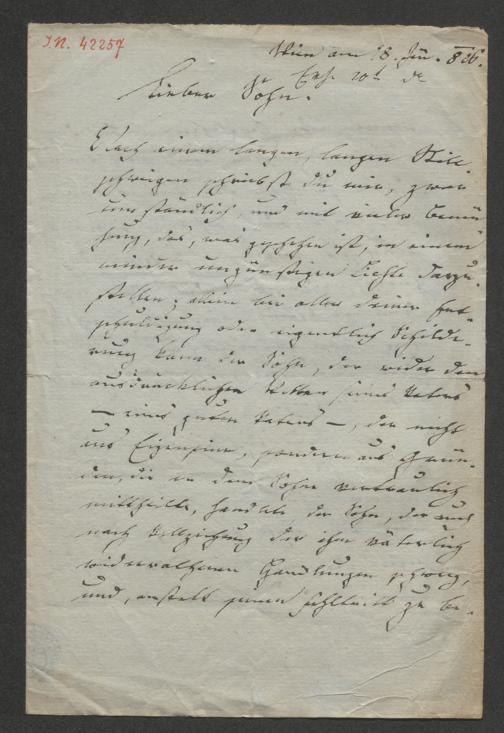 J.N. 42257
Wien am 18. Jän. 836.
Erh. 20t
Lieber Sohn.
Nach einem langen, langen Still-
schweigen schriebst du mir, zwar
umständlich, und mit vieler Bemü-
hung, das, was geschehen ist, in einem
minder ungünstigen Lichte darzu-
stellen; allein bei aller deiner Ent-
schuldigung oder eigentlich Schilde-
rung kann der Sohn, der wider den
ausdrücklichen Willen seines Vaters
— eines guten Vaters —, der nicht
aus Eigensinn, sondern aus Grün-
den, die er dem Sohne vertraulich
mittheilte, handelte der Sohn, der auch
nach Vollziehung der ihm väterlich
widerrathenen Handlungen schwieg,
und, anstatt seinen Fehltritt zu be-